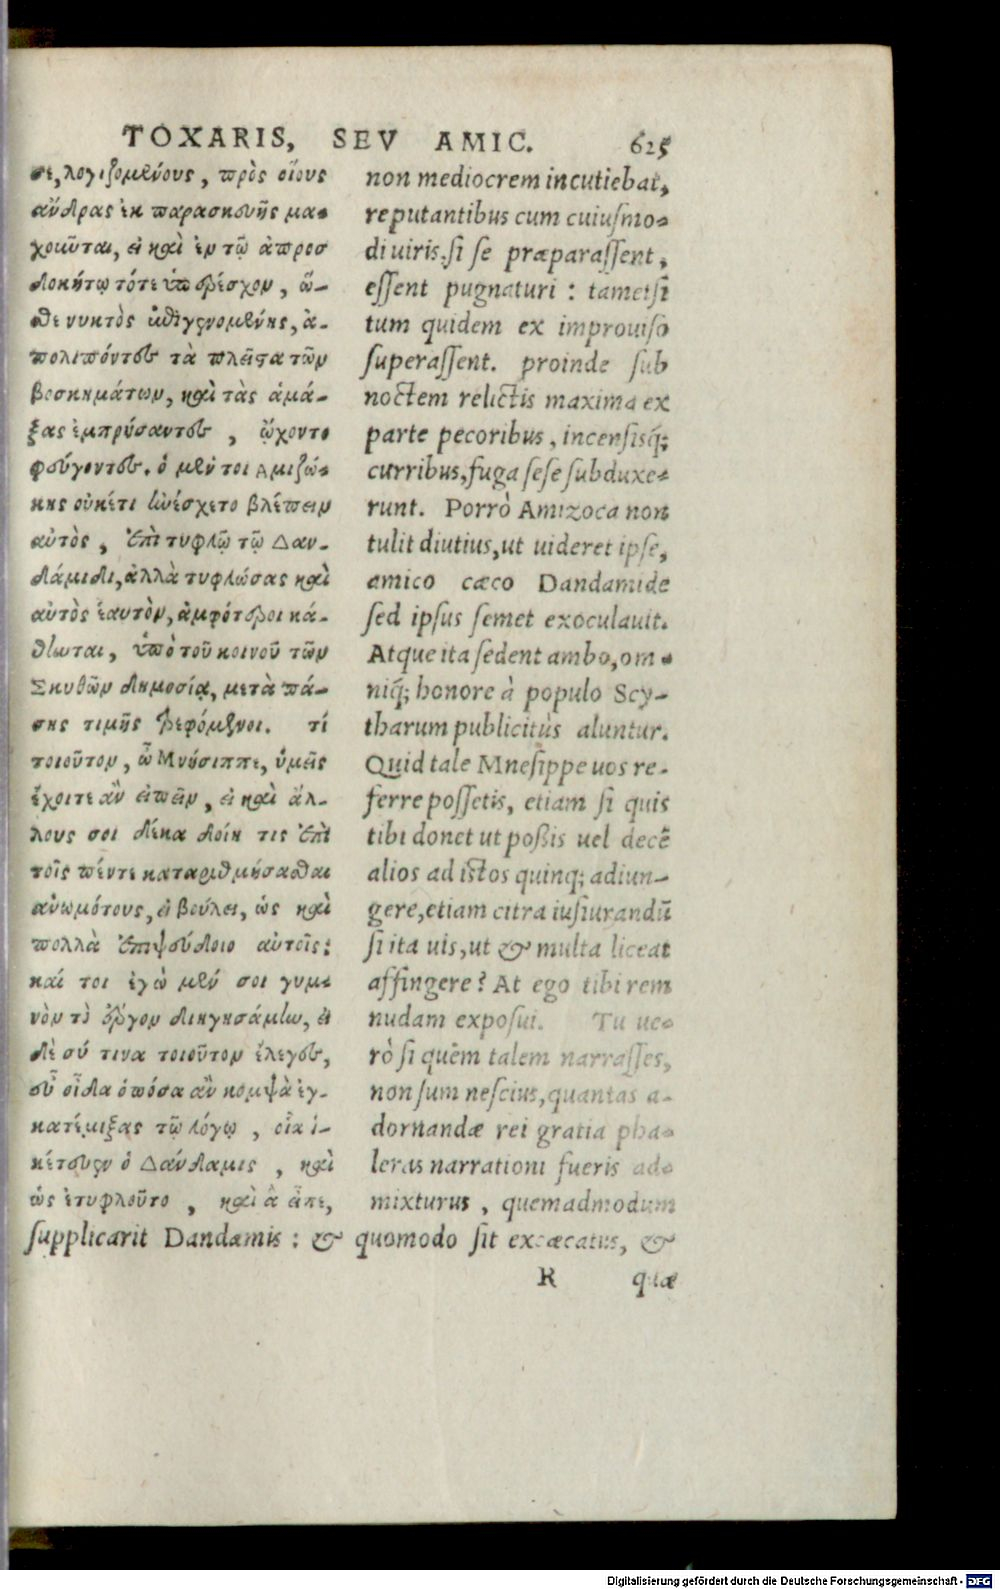 TOXARIS, SEV AMIC. 625
σι, λογιζομένους, πρὸς οἵους
ἄνδρας ἐκ παρασκευῆς μα-
χοῦνται, εἰ καὶ ἐν τῷ ἀπροσ
δοκήτῳ τότε ὑπερέσχον, ὥ-
στε νυκτὸς ἐπιγενομένης, ἀ-
πολιπόντες τὰ πλεῖστα τῶν
βοσκημάτων, καὶ τὰς ἁμά-
ξας ἐμπρήσαντες, ᾤχοντο
φεύγοντες. ὁ μέν τοι Αμιζώ-
κης οὐκέτι ἠνέσχετο βλέπειν
αὐτὸς, ἐπὶ τυφλῷ τῷ Δαν-
δάμιδι, ἀλλὰ τυφλώσας καὶ
αὐτὸς ἑαυτὸν, ἀμφότεροι κά-
θηνται, ὑπὸ τοῦ κοινοῦ τῶν
Σκυθῶν δημοσίᾳ, μετὰ πά-
σης τιμῆς τρεφόμενοι. τί
τοιοῦτον, ὦ Μνήσιππε, ὑμεῖς
ἔχοιτε ἂν εἰπεῖν, εἰ καὶ ἄλ-
λους σοι δέκα δοίη τις ἐπὶ
τοῖς πέντε καταριθμήσασθαι
ἀνωμότους, εἰ βούλει, ὡς καὶ
πολλὰ ἐπιψεύδοιο αὐτοῖς;
καί τοι ἐγὼ μέν σοι γυμ-
νὸν τὸ ἔργον διηγησάμην, εἰ
δὲ σύ τινα τοιοῦτον ἔλεγες,
εὖ οἶδα ὁπόσα ἂν κομψὰ ἐγ-
κατέμιξας τῷ λόγῳ, οἷα ἱ-
κέτευεν ὁ Δάνδαμις, καὶ
ὡς ἐτυφλοῦτο, καὶ ἃ εἶπε,
non mediocrem incutiebat,
reputantibus cum cuiuſmo-
di uiris, ſi ſe præparaſſent,
eſſent pugnaturi : tametſi
tum quidem ex improuiſo
ſuperaſſent. proinde ſub
noctem relictis maxima ex
parte pecoribus, incenſisq́;
curribus, fuga ſeſe ſubduxe-
runt. Porrò Amizoca non
tulit diutius, ut uideret ipſe,
amico cæco Dandamide
ſed ipſus ſemet exoculauit.
Atque ita ſedent ambo, om-
niq́; honore à populo Scy-
tharum publicitùs aluntur.
Quid tale Mneſippe uos re-
ferre poſſetis, etiam ſi quis
tibi donet ut poßis uel decẽ
alios ad iſtos quinq; adiun-
gere, etiam citra iuſiurandũ
ſi ita uis, ut & multa liceat
affingere? At ego tibi rem
nudam expoſui. Tu ue-
rò ſi quẽm talem narraſſes,
non ſum neſcius, quantas a-
dornandæ rei gratia pha-
leras narrationi fueris ad-
mixturus, quemadmodum
ſupplicarit Dandamis : & quomodo ſit excæcatus, &
R quæ
Digitalisierung gefördert durch die Deutsche Forschungsgemeinschaft - DFG